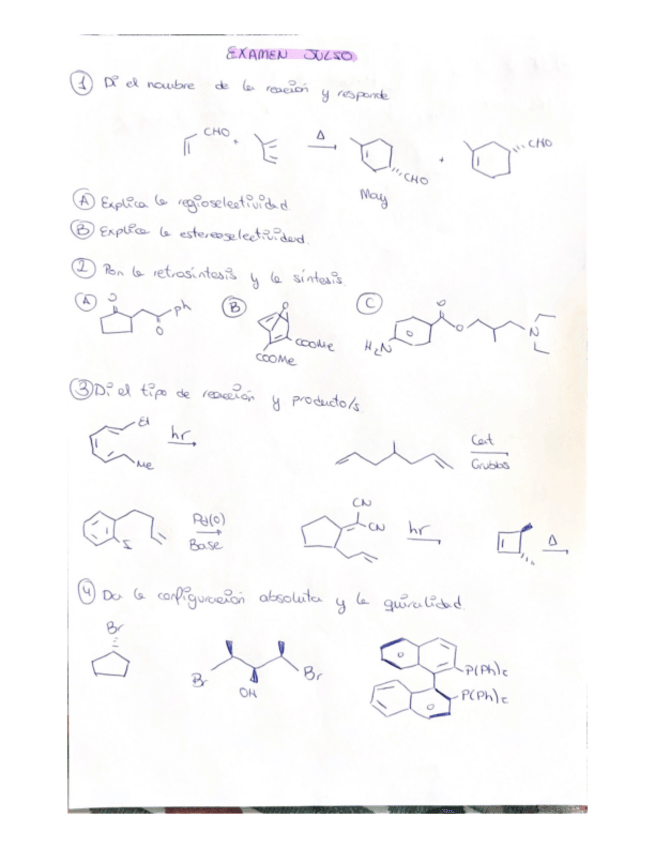 EXAMEN JULIO
① Di el nombre de la reacción y responde
CHO + Δ CHO + CHO
May
Ⓐ Explica la regioselectividad.
Ⓑ Explica la estereoselectividad.
② Pon la retrosíntesis y la síntesis.
Ⓐ O Ph O Ⓑ O COOMe COOMe Ⓒ O O N H₂N
③ Di el tipo de reacción y producto/s.
Et hν Me Cat Grubbs
I Pd(0) Base CN CN hν Δ
④ Da la configuración absoluta y la quiralidad.
Br Br OH Br P(Ph)₂ P(Ph)₂